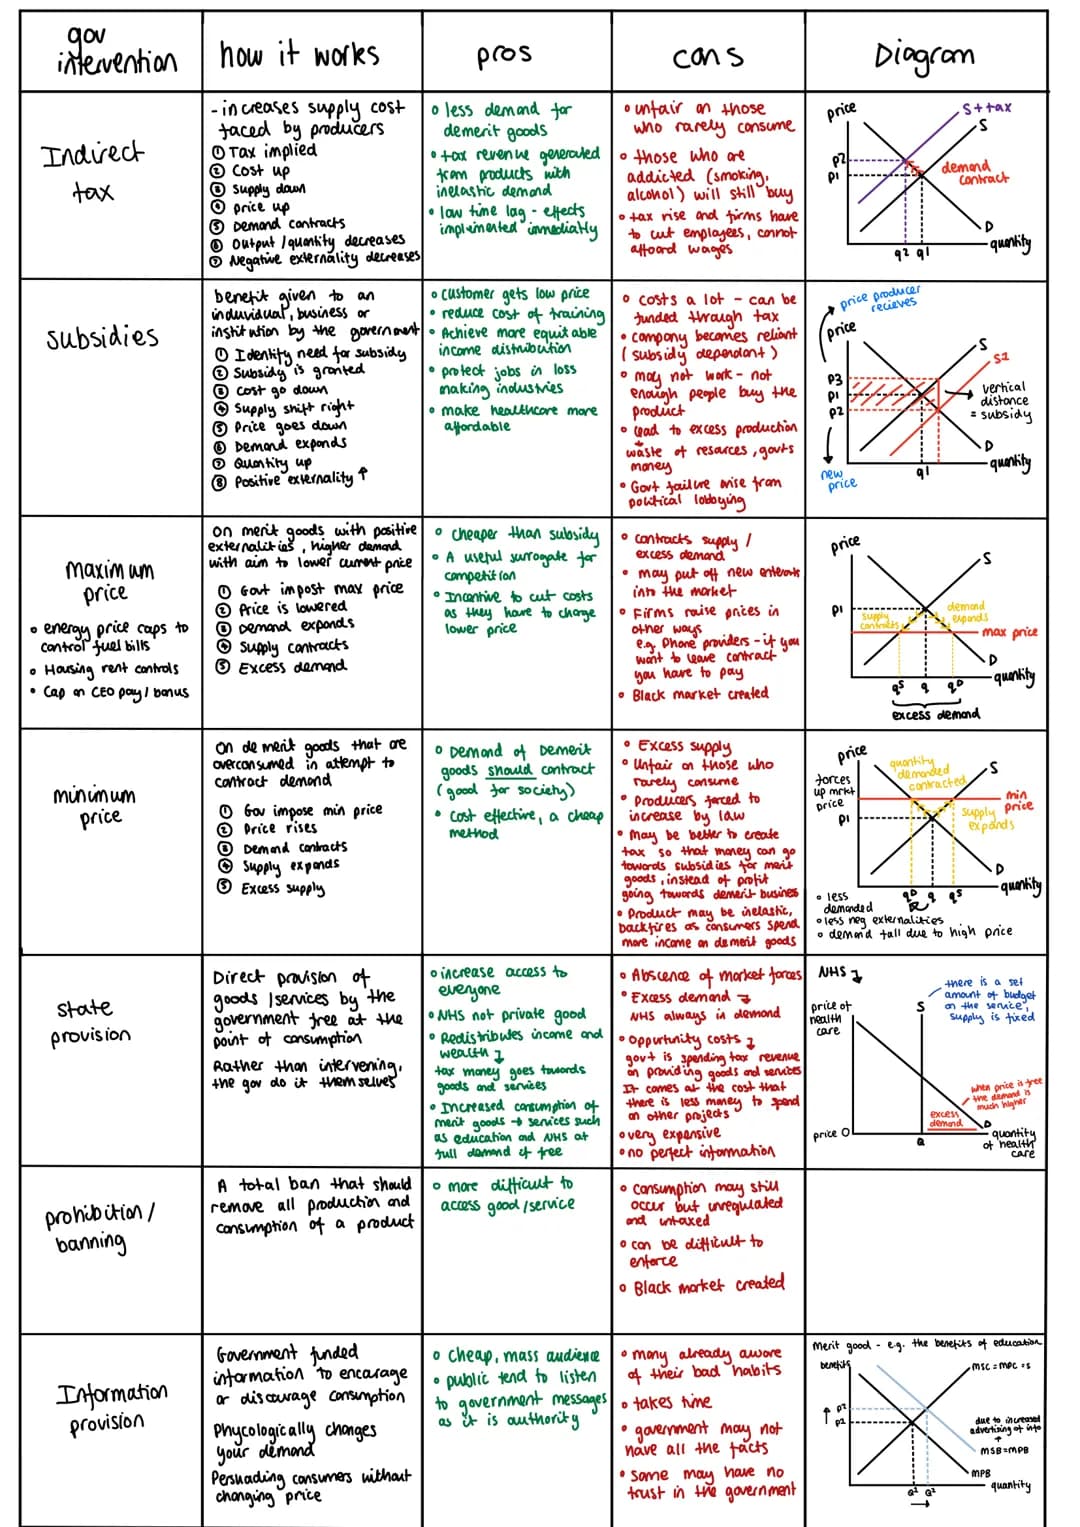 gov
intervention
how it works
pros
cons
Diagram
Indirect
tax
- increases supply cost
faced by producers
① Tax implied
② Cost up
③ Supply down
④ price up
⑤ Demand contracts
⑥ Output / quantity decreases
⑦ Negative externality decreases
• less demand for
demerit goods
• tax revenue generated
from products with
inelastic demand
• low time lag - effects
implemented immediatly
• unfair on those
who rarely consume
• those who are
addicted (smoking,
alcohol) will still buy
• tax rise and firms have
to cut employees, cannot
afford wages
price
S + tax
S
P2
P1
demand
contract
D
quantity
q2 q1
subsidies
benefit given to an
individual, business or
institution by the government
① Identify need for subsidy
② Subsidy is granted
③ Cost go down
④ Supply shift right
⑤ Price goes down
⑥ Demand expands
⑦ Quantity up
⑧ Positive externality ↑
• customer gets low price
• reduce cost of training
• Achieve more equitable
income distribution
• protect jobs in loss
making industries
• make healthcare more
affordable
• costs a lot - can be
funded through tax
• company becomes reliant
(subsidy dependant)
• may not work - not
enough people buy the
product
• lead to excess production
waste of resorces, govts
money
• Govt failure arise from
political lobbying
price producer
recieves
price
S
S2
P3
P1
P2
vertical
distance
= subsidy
D
quantity
q1
new
price
maximum
price
• energy price caps to
control fuel bills
• Housing rent controls
• Cap on CEO pay / bonus
on merit goods with positive
externalities, higher demand
with aim to lower current price
① Govt impost max price
② Price is lowered
③ Demand expands
④ Supply contracts
⑤ Excess demand
• cheaper than subsidy
• A useful surrogate for
competition
• Incentive to cut costs
as they have to charge
lower price
• contracts supply /
excess demand
• may put off new enterants
into the market
• Firms raise prices in
other ways
e.g. Phone providers - if you
want to leave contract
you have to pay
• Black market created
price
S
P1
supply
contracts
demand
expands
max price
D
quantity
qS q qD
excess demand
minimum
price
On de merit goods that are
overconsumed in attempt to
contract demand
① Gov impose min price
② Price rises
③ Demand contracts
④ Supply expands
⑤ Excess supply
• Demand of Demerit
goods should contract
(good for society)
• cost effective, a cheap
method
• Excess supply
• Unfair on those who
rarely consume
• Producers forced to
increase by law
• may be better to create
tax so that money can go
towards subsidies for merit
goods, instead of profit
going towards demerit busines
• Product may be inelastic,
backfires as consumers spend
more income on demerit goods
price
quantity
demanded
contracted
S
forces
up mrkt
price
min
price
P1
supply
expands
D
quantity
qD q qS
• less
demanded
• less neg externalities
• demand fall due to high price
state
provision
Direct provision of
goods / services by the
government free at the
point of consumption
Rather than intervening,
the gov do it themselves
• increase access to
everyone
• NHS not private good
• Redistributes income and
wealth
tax money goes towards
goods and services
• Increased consumption of
merit goods → services such
as education and NHS at
full demand if free
• Abscence of market forces
• Excess demand
NHS always in demand
• opportunity costs
govt is spending tax revenue
on providing goods and services
It comes at the cost that
there is less money to spend
on other projects
• very expensive
• no perfect information
NHS
price of
health
care
S
there is a set
amount of budget
on the service,
supply is fixed
when price is free
the demand is
much higher
excess
demand
D
price 0
Q
quantity
of health
care
prohibition /
banning
A total ban that should
remove all production and
consumption of a product
• more difficult to
access good / service
• consumption may still
occur but unregulated
and untaxed
• can be difficult to
enforce
• Black market created
Information
provision
Government funded
information to encourage
or discourage consumption
Phycologically changes
your demand
Persuading consumers without
changing price
• cheap, mass audience
• public tend to listen
to government messages
as it is authority
• many already aware
of their bad habits
• takes time
• government may not
have all the facts
• some may have no
trust in the government
merit good - e.g. the benefits of education
benefits
MSC = MPC = S
↑ P2
P1
due to increased
advertising of info
MSB = MPB
MPB
quantity
Q1 Q2